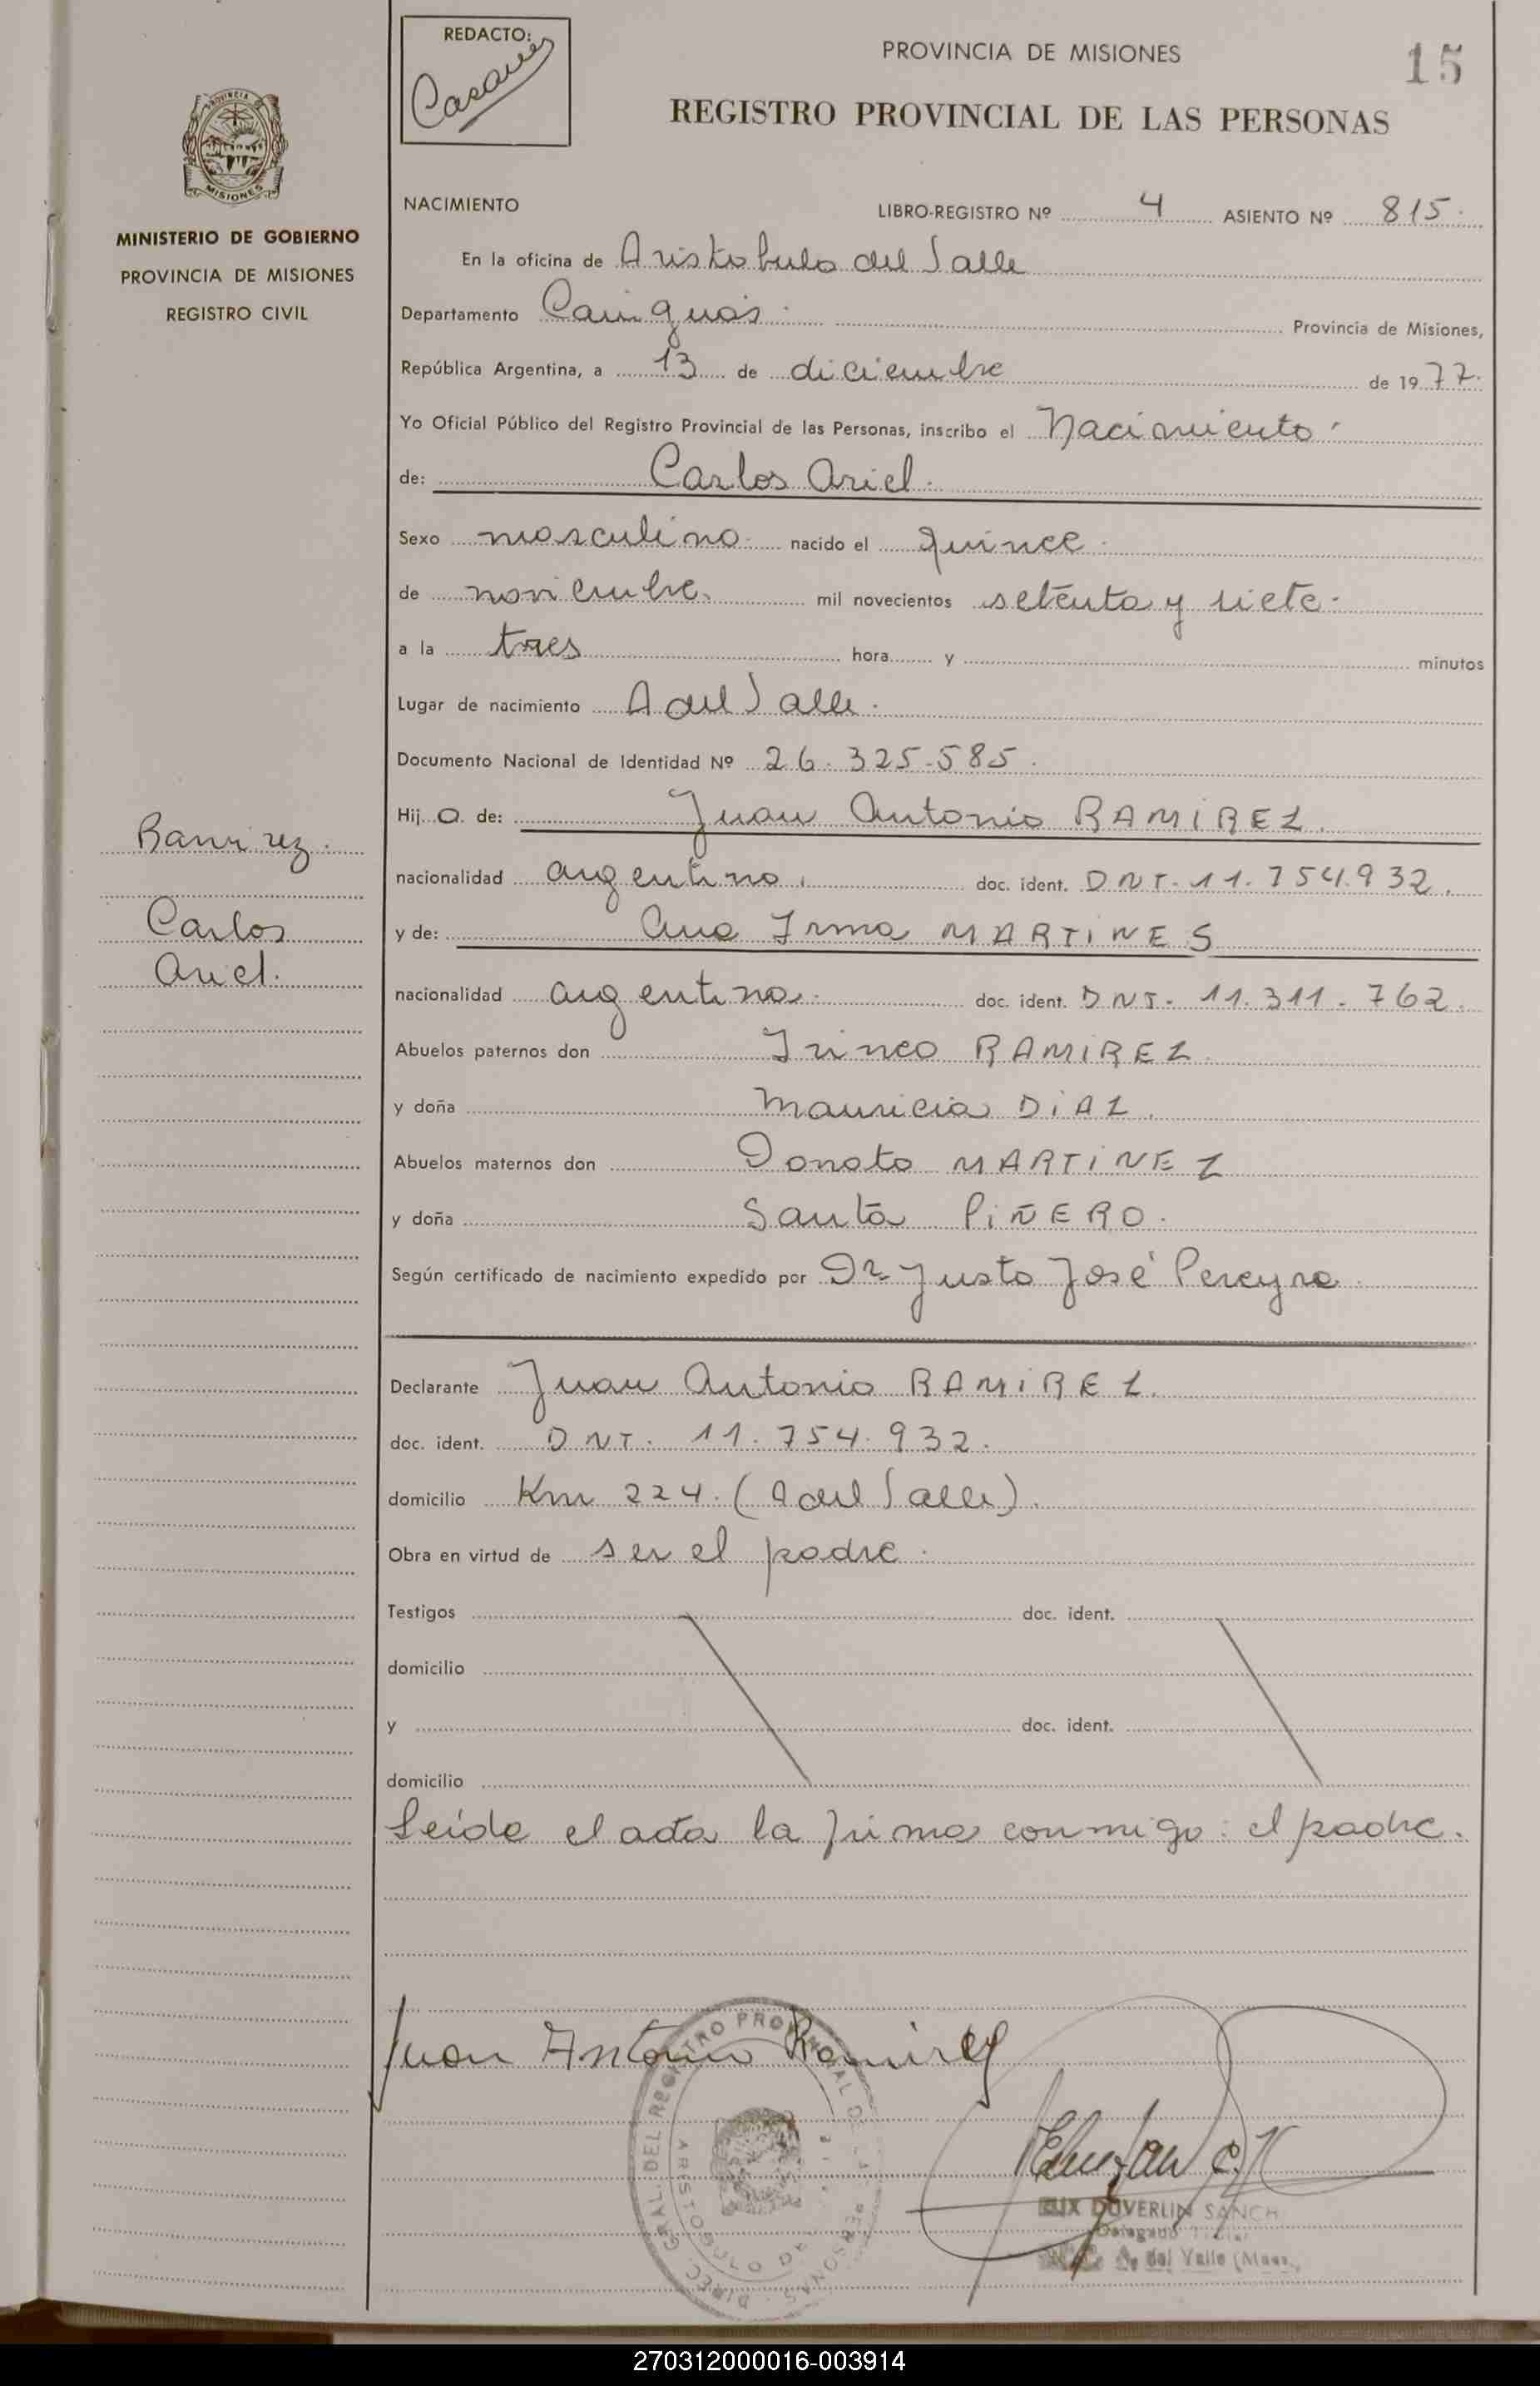 REDACTO:
PROVINCIA DE MISIONES
15
REGISTRO PROVINCIAL DE LAS PERSONAS
PROVINCIA
MISIONES
MINISTERIO DE GOBIERNO
PROVINCIA DE MISIONES
REGISTRO CIVIL
NACIMIENTO LIBRO-REGISTRO Nº 4 ASIENTO Nº 815.
En la oficina de Aristobulo del Valle
Departamento Cainguás. Provincia de Misiones,
República Argentina, a 13 de diciembre de 1977.
Yo Oficial Público del Registro Provincial de las Personas, inscribo el Nacimiento
de: Carlos Ariel.
Sexo masculino nacido el quince.
de noviembre. mil novecientos setenta y siete.
a la tres hora y minutos
Lugar de nacimiento A del Valle.
Documento Nacional de Identidad Nº 26.325.585.
Hijo de: Juan Antonio RAMIREZ.
nacionalidad argentino. doc. ident. DNI. 11.754.932.
y de: Ana Irma MARTINES
nacionalidad argentina. doc. ident. DNI. 11.311.762.
Abuelos paternos don Irineo RAMIREZ.
y doña Mauricia DIAZ.
Abuelos maternos don Donato MARTINEZ
y doña Santa PIÑERO.
Según certificado de nacimiento expedido por Dr Justo José Pereyra.
Declarante Juan Antonio RAMIREZ.
doc. ident. DNI. 11.754.932.
domicilio Km 224. (A del Valle).
Obra en virtud de ser el padre.
Testigos doc. ident.
domicilio
y doc. ident.
domicilio
Leída el acta la firma conmigo: el padre.
Ramirez.
Carlos
Ariel.
Juan Antonio Ramirez
DIREC. GRAL. DEL REGISTRO PROVINCIAL DE LAS PERSONAS
DOVERLIN SANCH
Delegado
A. del Valle
270312000016-003914